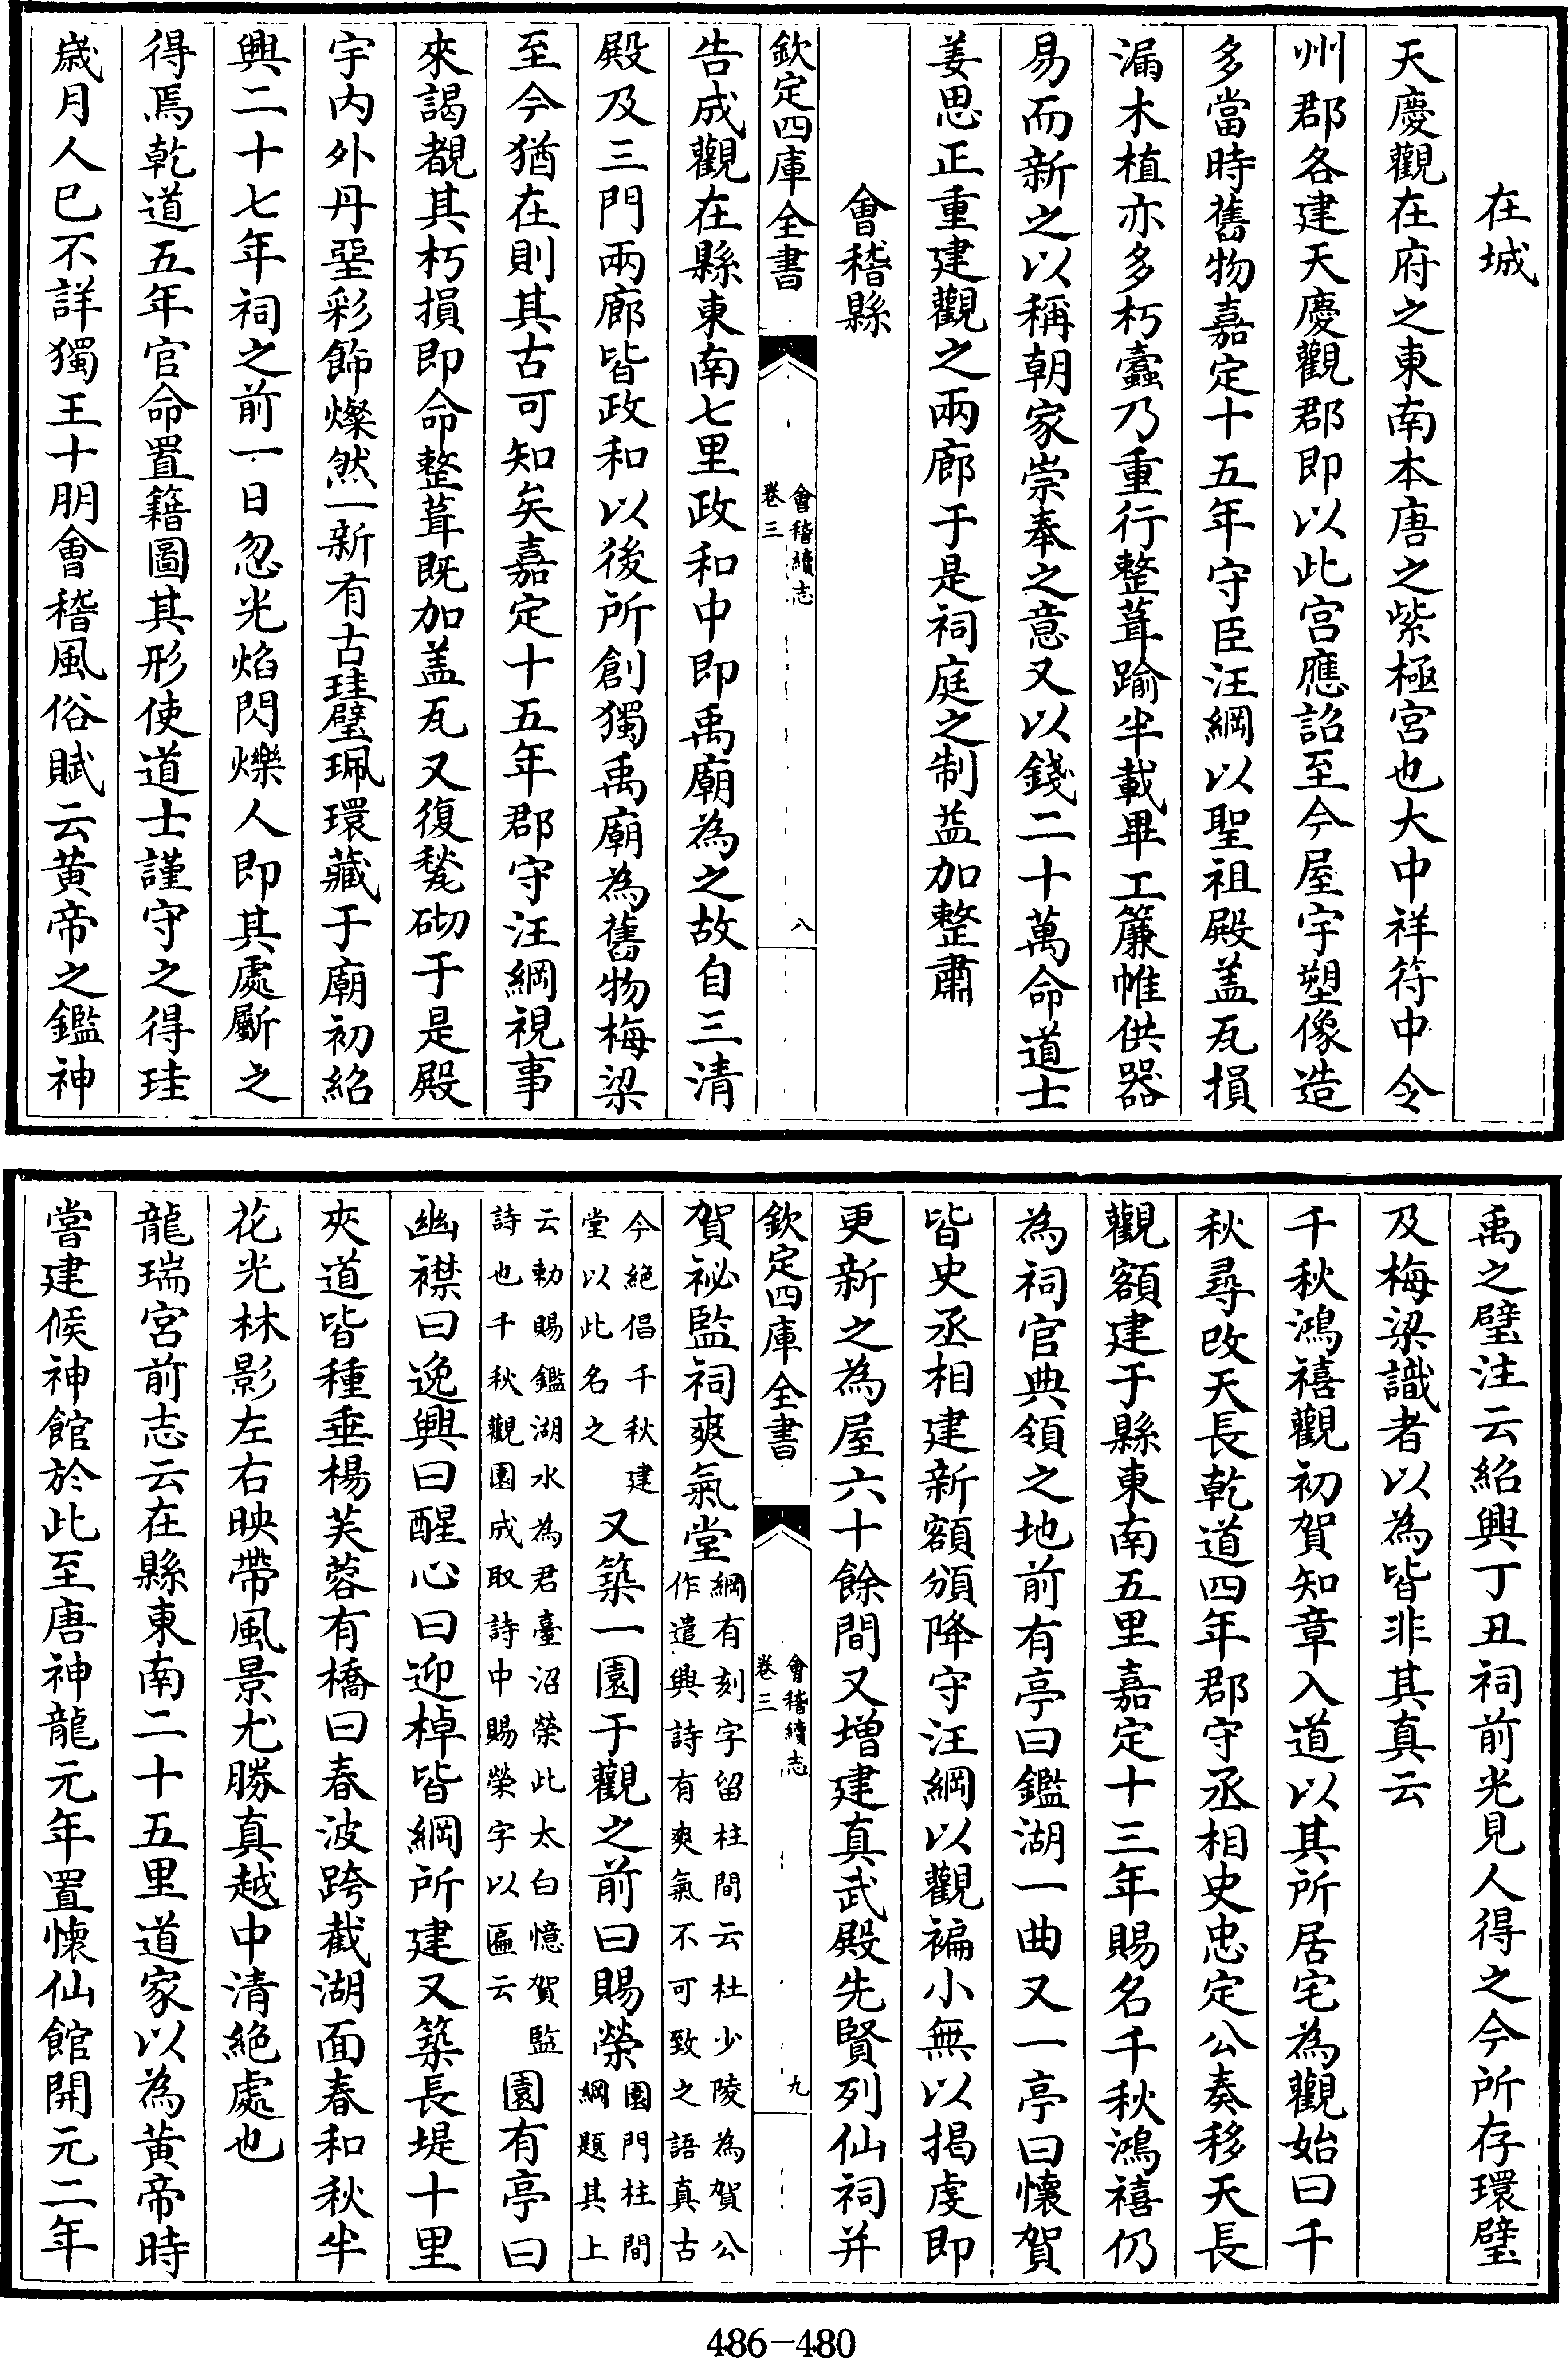 在城
天慶觀在府之東南本唐之紫極宮也大中祥符中令
州郡各建天慶觀郡即以此宫應詔至今屋宇塑像造
多當時舊物嘉定十五年守臣汪綱以聖祖殿盖瓦損
漏木植亦多朽蠧乃重行整葺踰半載畢工簾帷供器
易而新之以稱朝家崇奉之意又以錢二十萬命道士
姜思正重建觀之兩廊于是祠庭之制益加整肅
會稽縣
欽定四庫全書
會稽續志
卷三
八
告成觀在縣東南七里政和中即禹廟為之故自三清
殿及三門兩廊皆政和以後所創獨禹廟為舊物梅梁
至今猶在則其古可知矣嘉定十五年郡守汪綱視事
來謁覩其朽損即命整葺既加盖瓦又復甃砌于是殿
宇内外丹堊彩飾燦然一新有古珪璧珮環藏于廟初紹
興二十七年祠之前一日忽光焰閃爍人即其處斸之
得焉乾道五年官命置籍圖其形使道士謹守之得珪
歳月人已不詳獨王十朋會稽風俗賦云黄帝之鑑神
禹之璧注云紹興丁丑祠前光見人得之今所存環璧
及梅梁識者以為皆非其真云
千秋鴻禧觀初賀知章入道以其所居宅為觀始曰千
秋尋改天長乾道四年郡守丞相史忠定公奏移天長
觀額建于縣東南五里嘉定十三年賜名千秋鴻禧仍
為祠官典領之地前有亭曰鑑湖一曲又一亭曰懷賀
皆史丞相建新額頒降守汪綱以觀褊小無以揭虔即
更新之為屋六十餘間又增建真武殿先賢列仙祠并
欽定四庫全書
會稽續志
卷三
九
賀祕監祠爽氣堂綱有刻字留柱間云杜少陵為賀公作遣興詩有爽氣不可致之語真古
今絶倡千秋建堂以此名之又築一園于觀之前曰賜榮園門柱間綱題其上
云勅賜鑑湖水為君臺沼榮此太白憶賀監詩也千秋觀園成取詩中賜榮字以匾云園有亭曰
幽襟曰逸興曰醒心曰迎棹皆綱所建又築長堤十里
夾道皆種垂楊芙蓉有橋曰春波跨截湖面春和秋半
花光林影左右映帶風景尤勝真越中清絶處也
龍瑞宮前志云在縣東南二十五里道家以為黄帝時
嘗建候神館於此至唐神龍元年置懷仙館開元二年
486-480